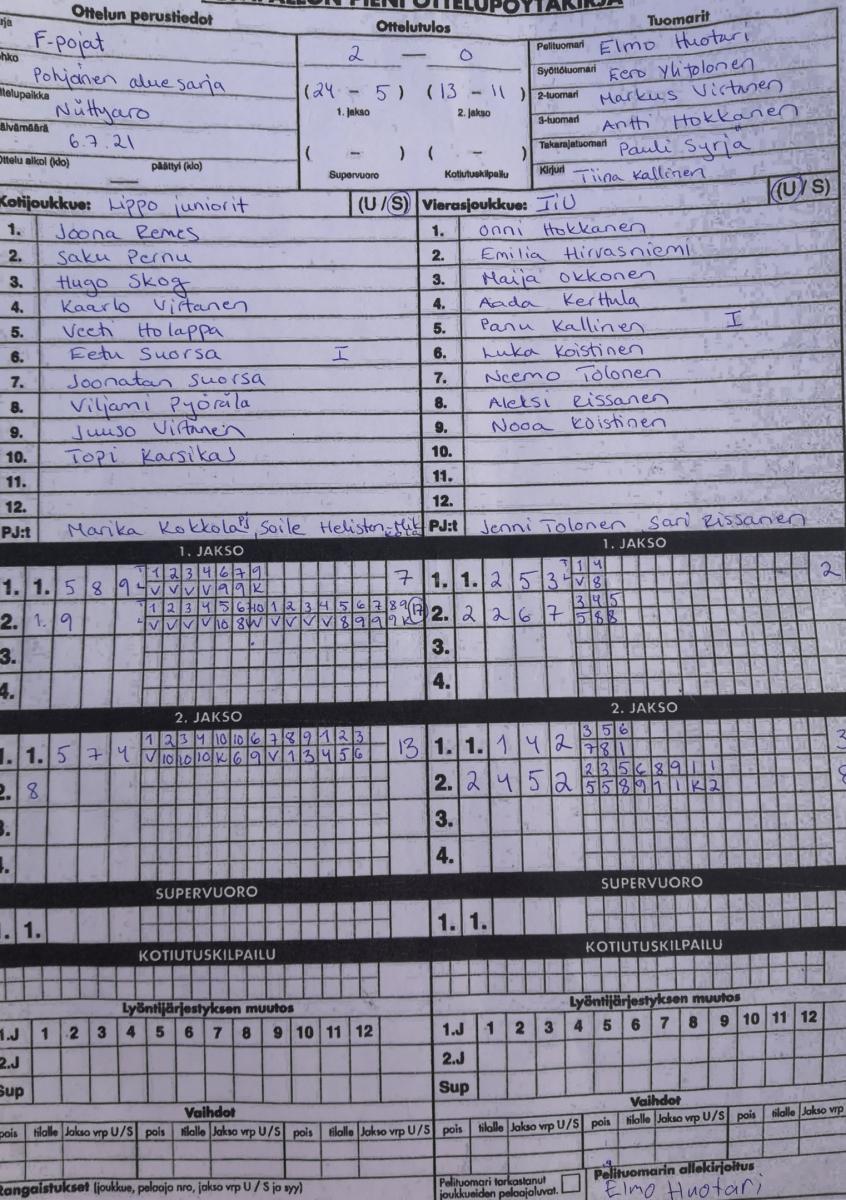 PIENI OTTELUPÖYTÄKIRJA
Ottelun perustiedot
F-pojat
Pohjoinen aluesarja
Niittyaro
6.7.21
Ottelu alkoi (klo) päättyi (klo)
Ottelutulos
2 — 0
(24 - 5) (13 - 11)
1. jakso 2. jakso
( - ) ( - )
Supervuoro Kotiutuskilpailu
Tuomarit
Pelituomari Elmo Huotari
Syöttötuomari Eero Ylitolonen
2-tuomari Markus Virtanen
3-tuomari Antti Hokkanen
Takarajatuomari Pauli Syrjä
Kirjuri Tiina Kallinen
Kotijoukkue: Lippo juniorit (U / S)
1. Joona Remes
2. Saku Pernu
3. Hugo Skog
4. Kaarlo Virtanen
5. Veeti Holappa
6. Eetu Suorsa I
7. Joonatan Suorsa
8. Viljami Pyörälä
9. Juuso Virtanen
10. Topi Karsikas
11.
12.
PJ:t Marika Kokkola, Soile Heliston-
Vierasjoukkue: IiU (U / S)
1. Onni Hokkanen
2. Emilia Hirvasniemi
3. Maija Okkonen
4. Aada Kerttula
5. Panu Kallinen I
6. Luka Koistinen
7. Neemo Tolonen
8. Aleksi Rissanen
9. Nooa Koistinen
10.
11.
12.
PJ:t Jenni Tolonen Sari Rissanen
1. JAKSO
1 2 3 4 6 7 9
1. 1. 5 8 9 V V V V 9 9 K 7
1 2 3 4 5 6 10 1 2 3 4 5 6 7 8 9 17
2. 1. 9 V V V V 10 8 V V V V V 8 9 9 9 K
3.
4.
1. JAKSO
1 4
1. 1. 2 5 3 V 8 2
3 4 5
2. 2 2 6 7 5 8 8
3.
4.
2. JAKSO
1 2 3 4 10 10 6 7 8 9 1 2 3
1. 1. 5 7 4 V 10 10 10 K 6 9 V 1 3 4 5 6 13
2. 8
3.
4.
2. JAKSO
3 5 6
1. 1. 1 4 2 7 8 1 3
2 3 5 6 8 9 1 1
2. 2 4 5 2 5 5 8 9 1 1 K 2 8
3.
4.
SUPERVUORO
1. 1.
SUPERVUORO
1. 1.
KOTIUTUSKILPAILU
KOTIUTUSKILPAILU
Lyöntijärjestyksen muutos
1.J 1 2 3 4 5 6 7 8 9 10 11 12
2.J
Sup
Lyöntijärjestyksen muutos
1.J 1 2 3 4 5 6 7 8 9 10 11 12
2.J
Sup
Vaihdot
pois tilalle Jakso vrp U / S pois tilalle Jakso vrp U / S pois tilalle Jakso vrp U / S
Vaihdot
pois tilalle Jakso vrp U / S pois tilalle Jakso vrp U / S pois tilalle Jakso vrp
Rangaistukset (joukkue, pelaaja nro, jakso vrp U / S ja syy)
Pelituomari tarkastanut
joukkueiden pelaajaluvat.
Pelituomarin allekirjoitus
Elmo Huotari